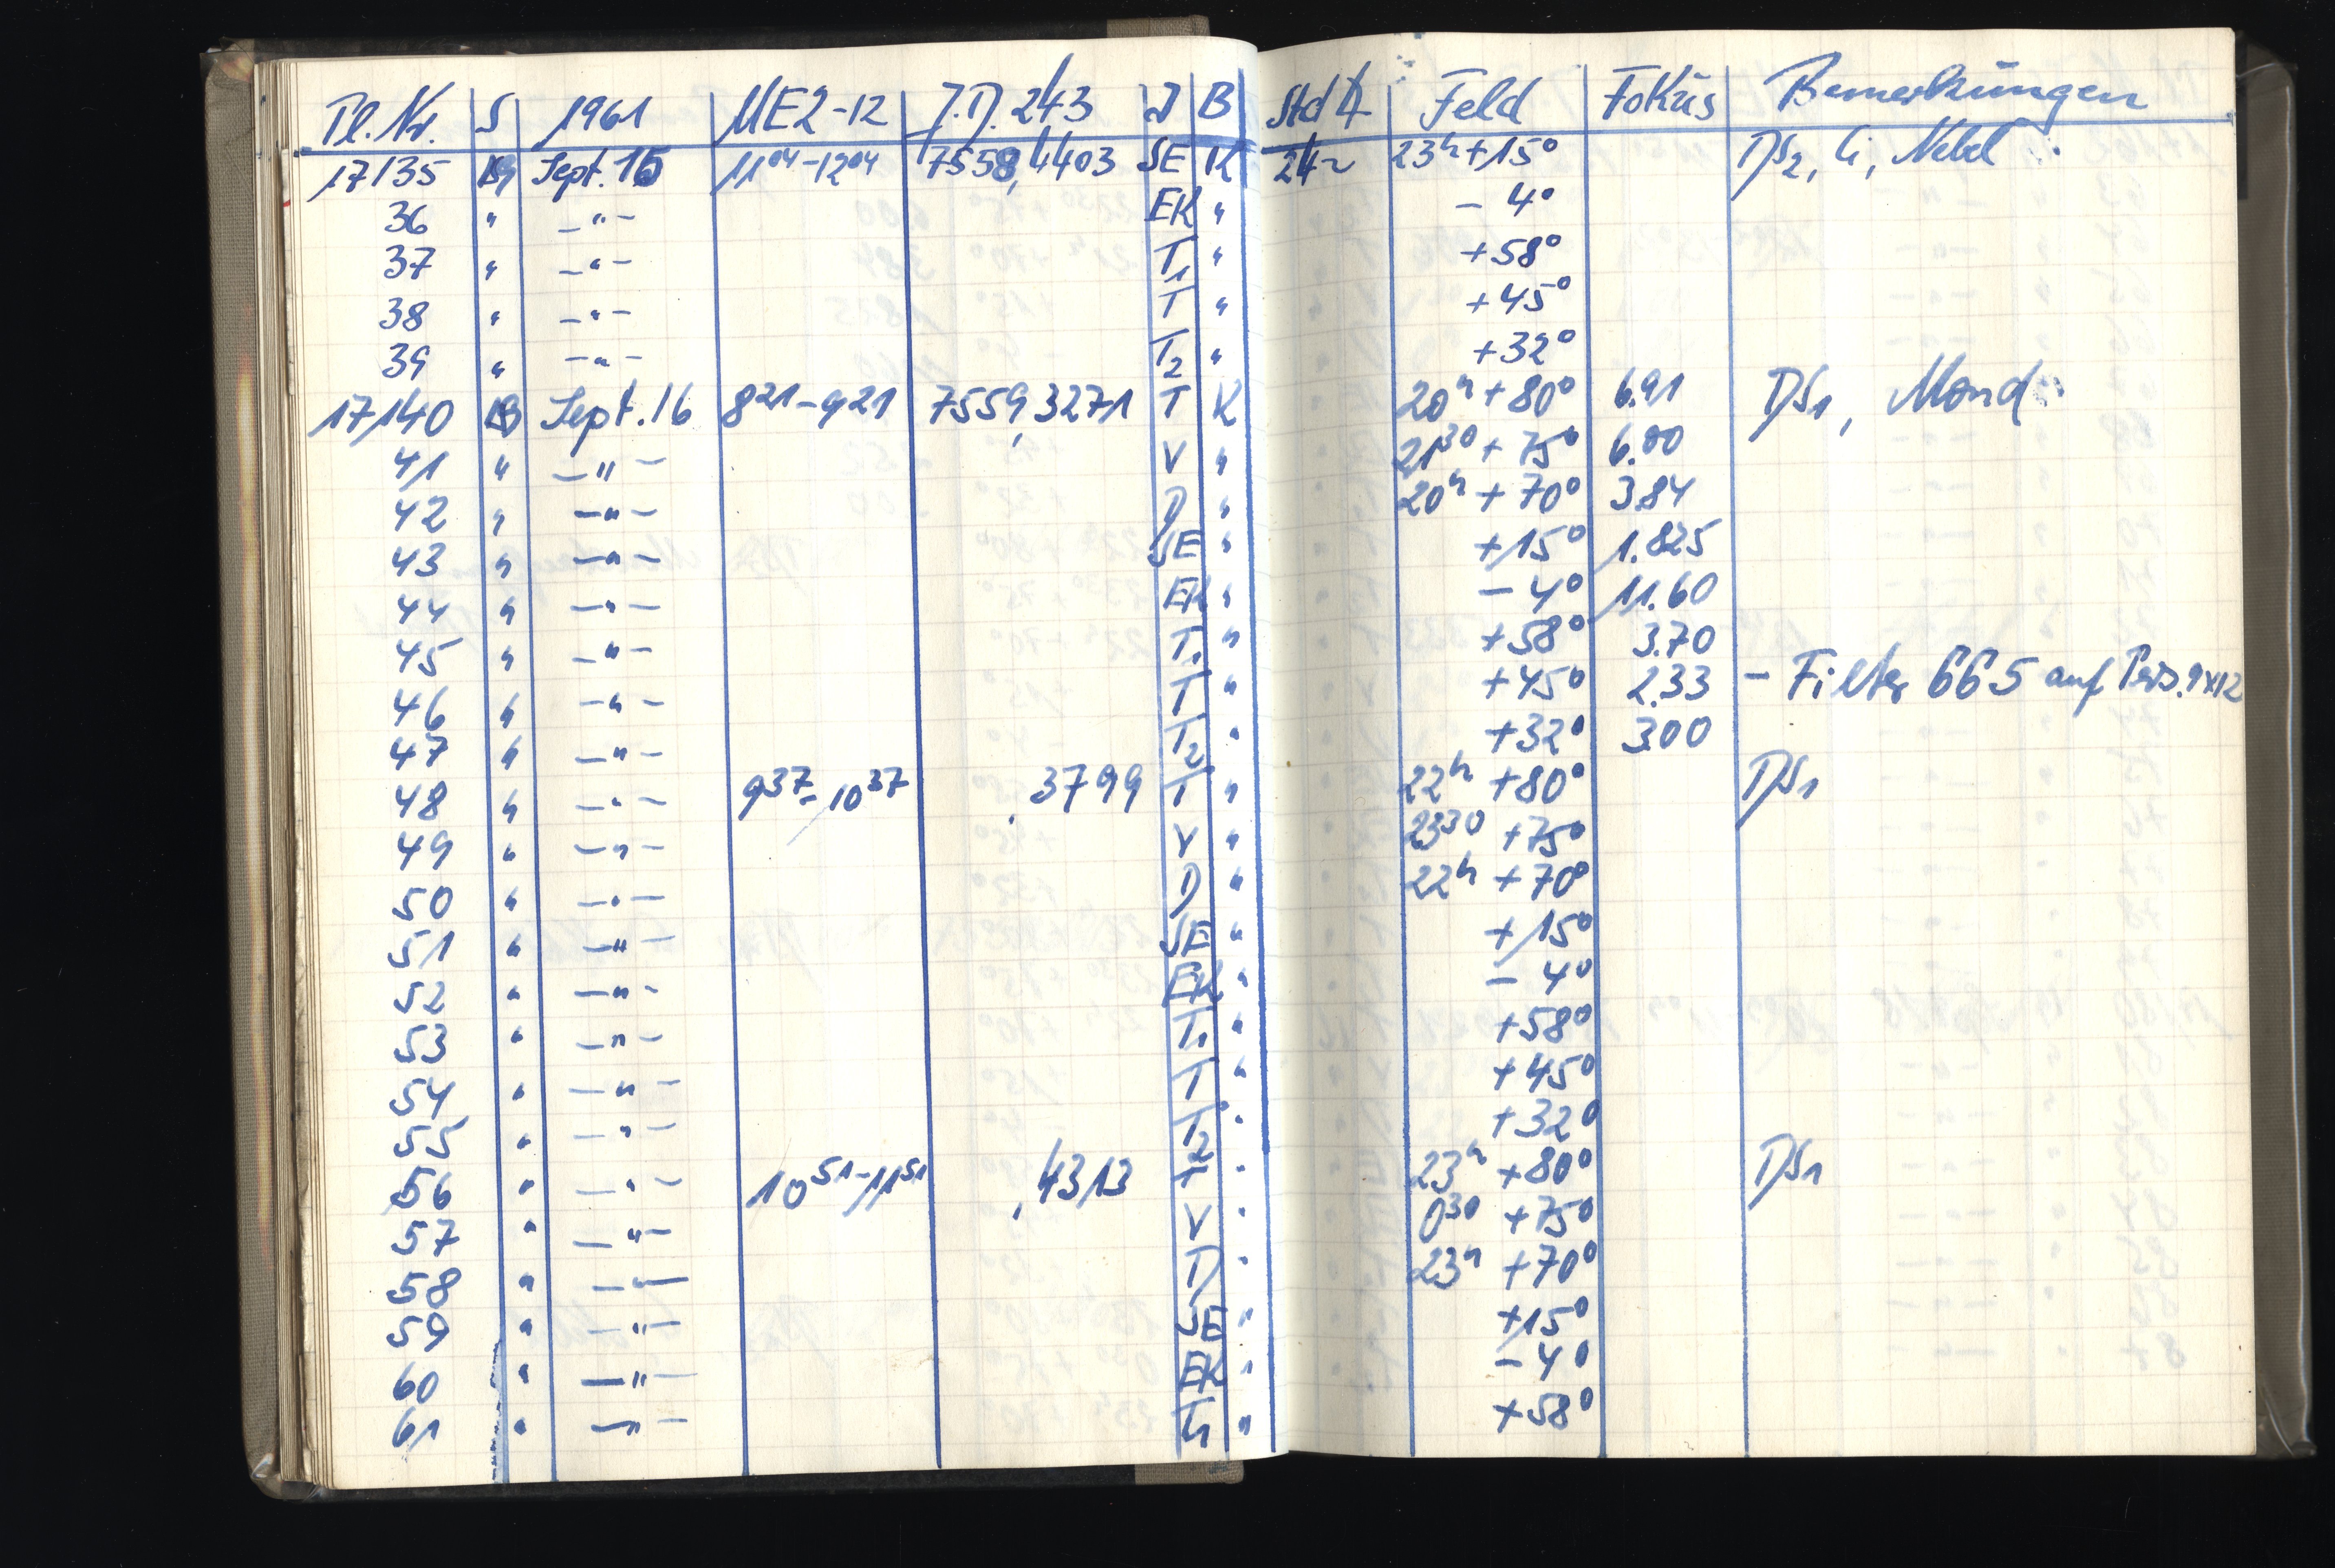 Pl.Nr. S 1961 MEZ-12 J.D. 243 I B Std∢ Feld Fokus Bemerkungen
17135 Sept. 15 11⁰⁴-12⁰⁴ 7558,4403 SE K 24~ 23ʰ+15° DS₂, Ci, Nebel
36 " -"- EK " -4°
37 " -"- T₁ " +58°
38 " -"- T " +45°
39 " -"- T₂ " +32°
17140 Sept. 16 8²¹-9²¹ 7559,3271 T K 20ʰ+80° 6.91 DS₁, Mond
41 " -"- V " 21³⁰+75° 6.00
42 " -"- D " 20ʰ+70° 3.84
43 " -"- SE " +15° 1.825
44 " -"- EK " -4° 11.60
45 " -"- T₁ " +58° 3.70
46 " -"- T " +45° 2.33 - Filter 665 auf 9x12
47 " -"- T₂ " +32° 3.00
48 " -"- 9³⁷-10³⁷ ,3799 T " 22ʰ+80° DS₁
49 " -"- V " 23³⁰+75°
50 " -"- D " 22ʰ+70°
51 " -"- SE " +15°
52 " -"- EK " -4°
53 " -"- T₁ " +58°
54 " -"- T " +45°
55 " -"- T₂ " +32°
56 " -"- 10⁵¹-11⁵¹ ,4313 T " 23ʰ+80° DS₁
57 " -"- V " 0³⁰+75°
58 " -"- D " 23ʰ+70°
59 " -"- SE " +15°
60 " -"- EK " -4°
61 " -"- T₁ " +58°